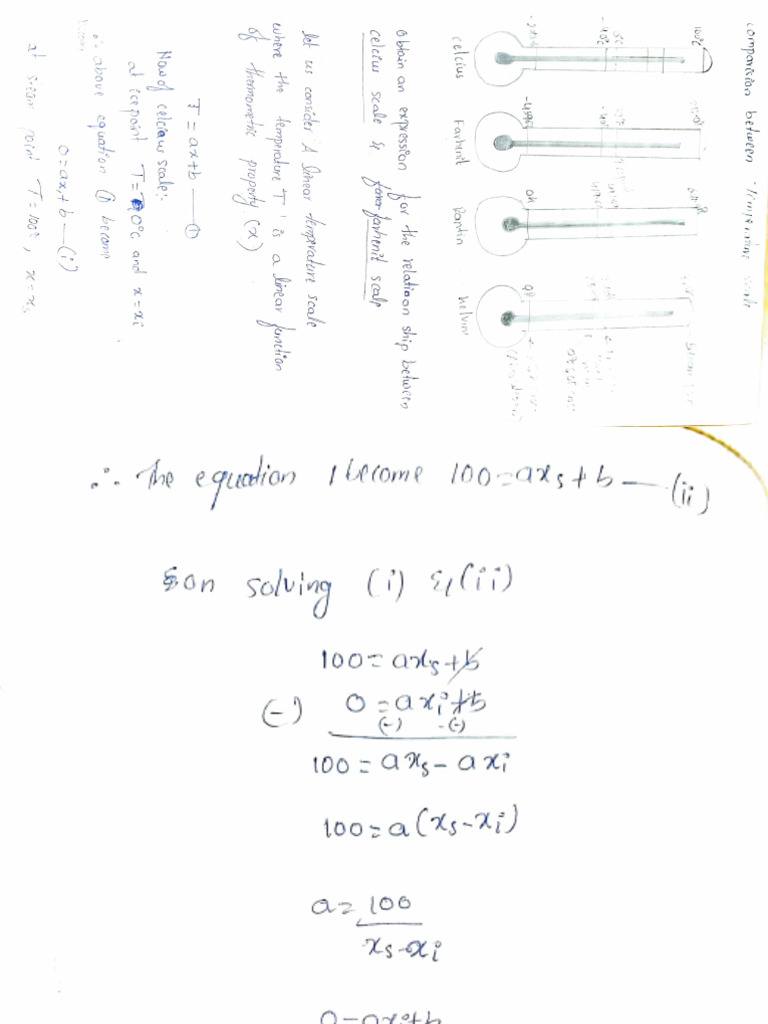 comparision between temperature scale
100°C
-40°C
celcius
Farhenit
Rankin
kelvin
0R
Obtain an expression for the relatioon ship between
celcius scale & farhenit scalp
let us consider A linear temperature scale
where the temprature 'T' is a linear function
of thermometric property (x)
T = ax+b — ①
Now of celcius scale:-
at ice point T = 0°C and x = xi
∴ above equation ① become
0 = axi + b — (i)
at steam point T = 100°, x = xs
∴ The equation 1 become 100 = axs + b — (ii)
on solving (i) & (ii)
100 = axs + b
(-) 0 = axi + b
(-) -(-)
100 = axs - axi
100 = a(xs - xi)
a = 100
xs - xi
0 = axi + b